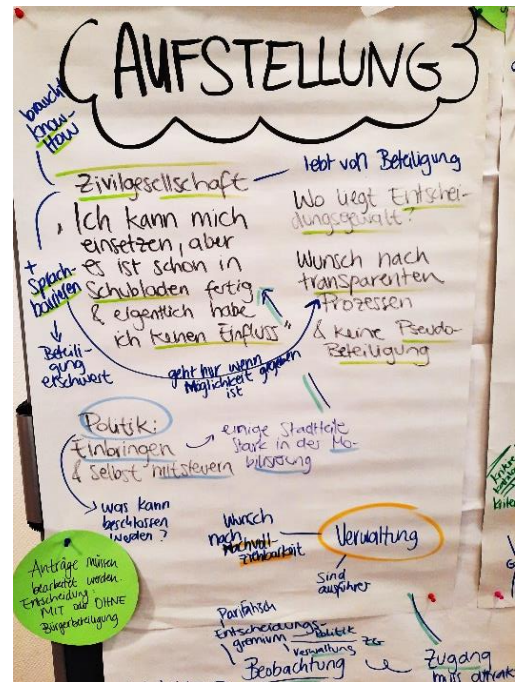 AUFSTELLUNG
braucht
know-
How
Zivilgesellschaft
lebt von Beteiligung
"Ich kann mich
einsetzen, aber
es ist schon in
Schubladen fertig
& eigentlich habe
ich keinen Einfluss"
Wo liegt Entschei-
dungsgewalt?
Wunsch nach
transparenten
Prozessen
& keine Pseudo-
Beteiligung
+
Sprach-
barrieren
Beteili-
gung
erschwert
geht nur wenn
Möglichkeit gegeben
ist
Politik:
Einbringen
& selbst mitsteuern
einige Stadtteile
stark in des Mo-
bilisierung
was kann
beschlossen
werden?
Wunsch
nach
Nachvoll-
ziehbarkeit
Verwaltung
sind
ausführer
Anträge müssen
bearbeitet werden.
Entscheidung
MIT oder OHNE
Bürgerbeteiligung
Paritätisch
Entscheidungs-
gremium
Politik
Verwaltung
ZG
Beobachtung
Zugang
muss